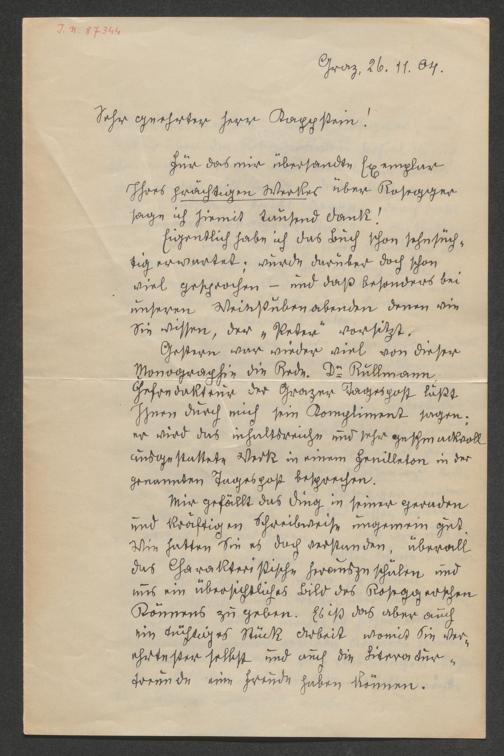 J. N. 87344
Graz, 26. 11. 04.
Sehr geehrter Herr Kappstein!
Für das mir übersandte Exemplar
Ihres prächtigen Werkes über Rosegger
sage ich hiemit tausend Dank!
Eigentlich habe ich das Buch schon sehnsüch-
tig erwartet; wurde darüber doch schon
viel gesprochen – und das besonders bei
unseren Weinstubenabenden denen wie
Sie wissen, der „Peter“ vorsitzt.
Gestern war wieder viel von dieser
Monographie die Rede. Dr. Kullmann
Chefredakteur der Grazer Tagespost läßt
Ihnen durch mich sein Kompliment sagen;
er wird das inhaltsreiche und sehr geschmackvoll
ausgestattete Werk in einem Feuilleton in der
genannten Tagespost besprechen.
Mir gefällt das Ding in seiner geraden
und kräftigen Schreibweise ungemein gut.
Wie hatten Sie es doch verstanden, überall
das Charakteristische herauszuschälen und
uns ein übersichtliches Bild des Roseggerschen
Könnens zu geben. Es ist das aber auch
ein tüchtiges Stück Arbeit womit Sie Ver-
ehrtester selbst und auch die Literatur-
freunde eine Freude haben können.